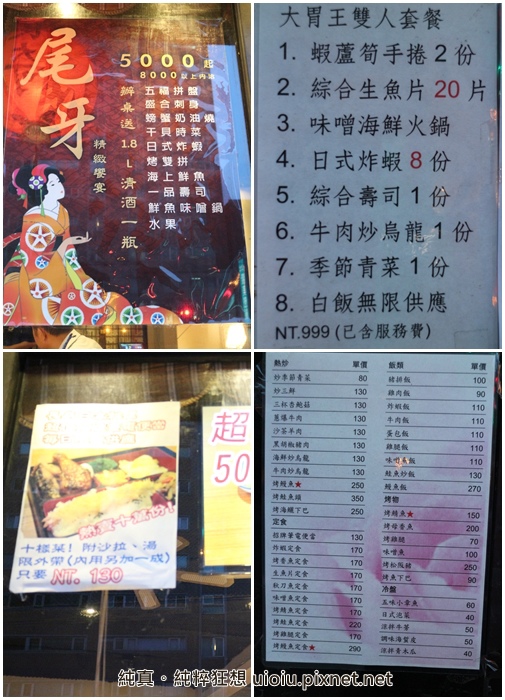 尾牙
精緻饗宴
5000起
8000以上內送
辦桌送1.8L清酒一瓶
五福拼盤
綜合刺身
日式炸拼
水果
大胃王雙人套餐
1. 蝦蘆筍手捲 2 份
2. 綜合生魚片 20 片
3. 味噌海鮮火鍋
4. 日式炸蝦 8 份
5. 綜合壽司 1 份
6. 牛肉炒烏龍 1 份
7. 季節青菜 1 份
8. 白飯無限供應
NT.999 (已含服務費)
熱賣十萬份!
十樣菜!附沙拉、湯
限外帶(內用另加一成)
只要 NT. 130
超
50
熱炒 單價
炒季節青菜 80
炒三鮮 130
三杯杏鮑菇 130
蔥爆牛肉 130
沙茶羊肉 130
黑胡椒豬肉 130
海鮮炒烏龍 130
牛肉炒烏龍 130
烤鰻魚★ 250
烤鮭魚頭 350
烤海鱺下巴 250
定食
招牌筆電便當 130
炸蝦定食 170
烤香魚定食 170
生魚片定食 170
秋刀魚定食 170
味噌魚定食 170
烤鯖魚定食 170
烤鮭魚定食 220
烤雞腿定食 170
烤鰻魚定食★ 290
飯類 單價
豬排飯 100
雞肉飯 90
炸蝦飯 110
牛肉飯 110
蛋包飯 110
雞腿飯 110
味噌魚飯 110
鮭魚炒飯 130
鰻魚飯 270
烤物
烤鯖魚★ 150
烤母香魚 200
烤雞腿 70
味噌魚 100
烤松阪豬 250
烤魚下巴 90
冷盤
五味小章魚 60
日式泡菜 40
涼拌牛蒡 50
調味海蜇皮 50
涼拌青木瓜 40
純真。純粹狂想 uioiu.pixnet.net